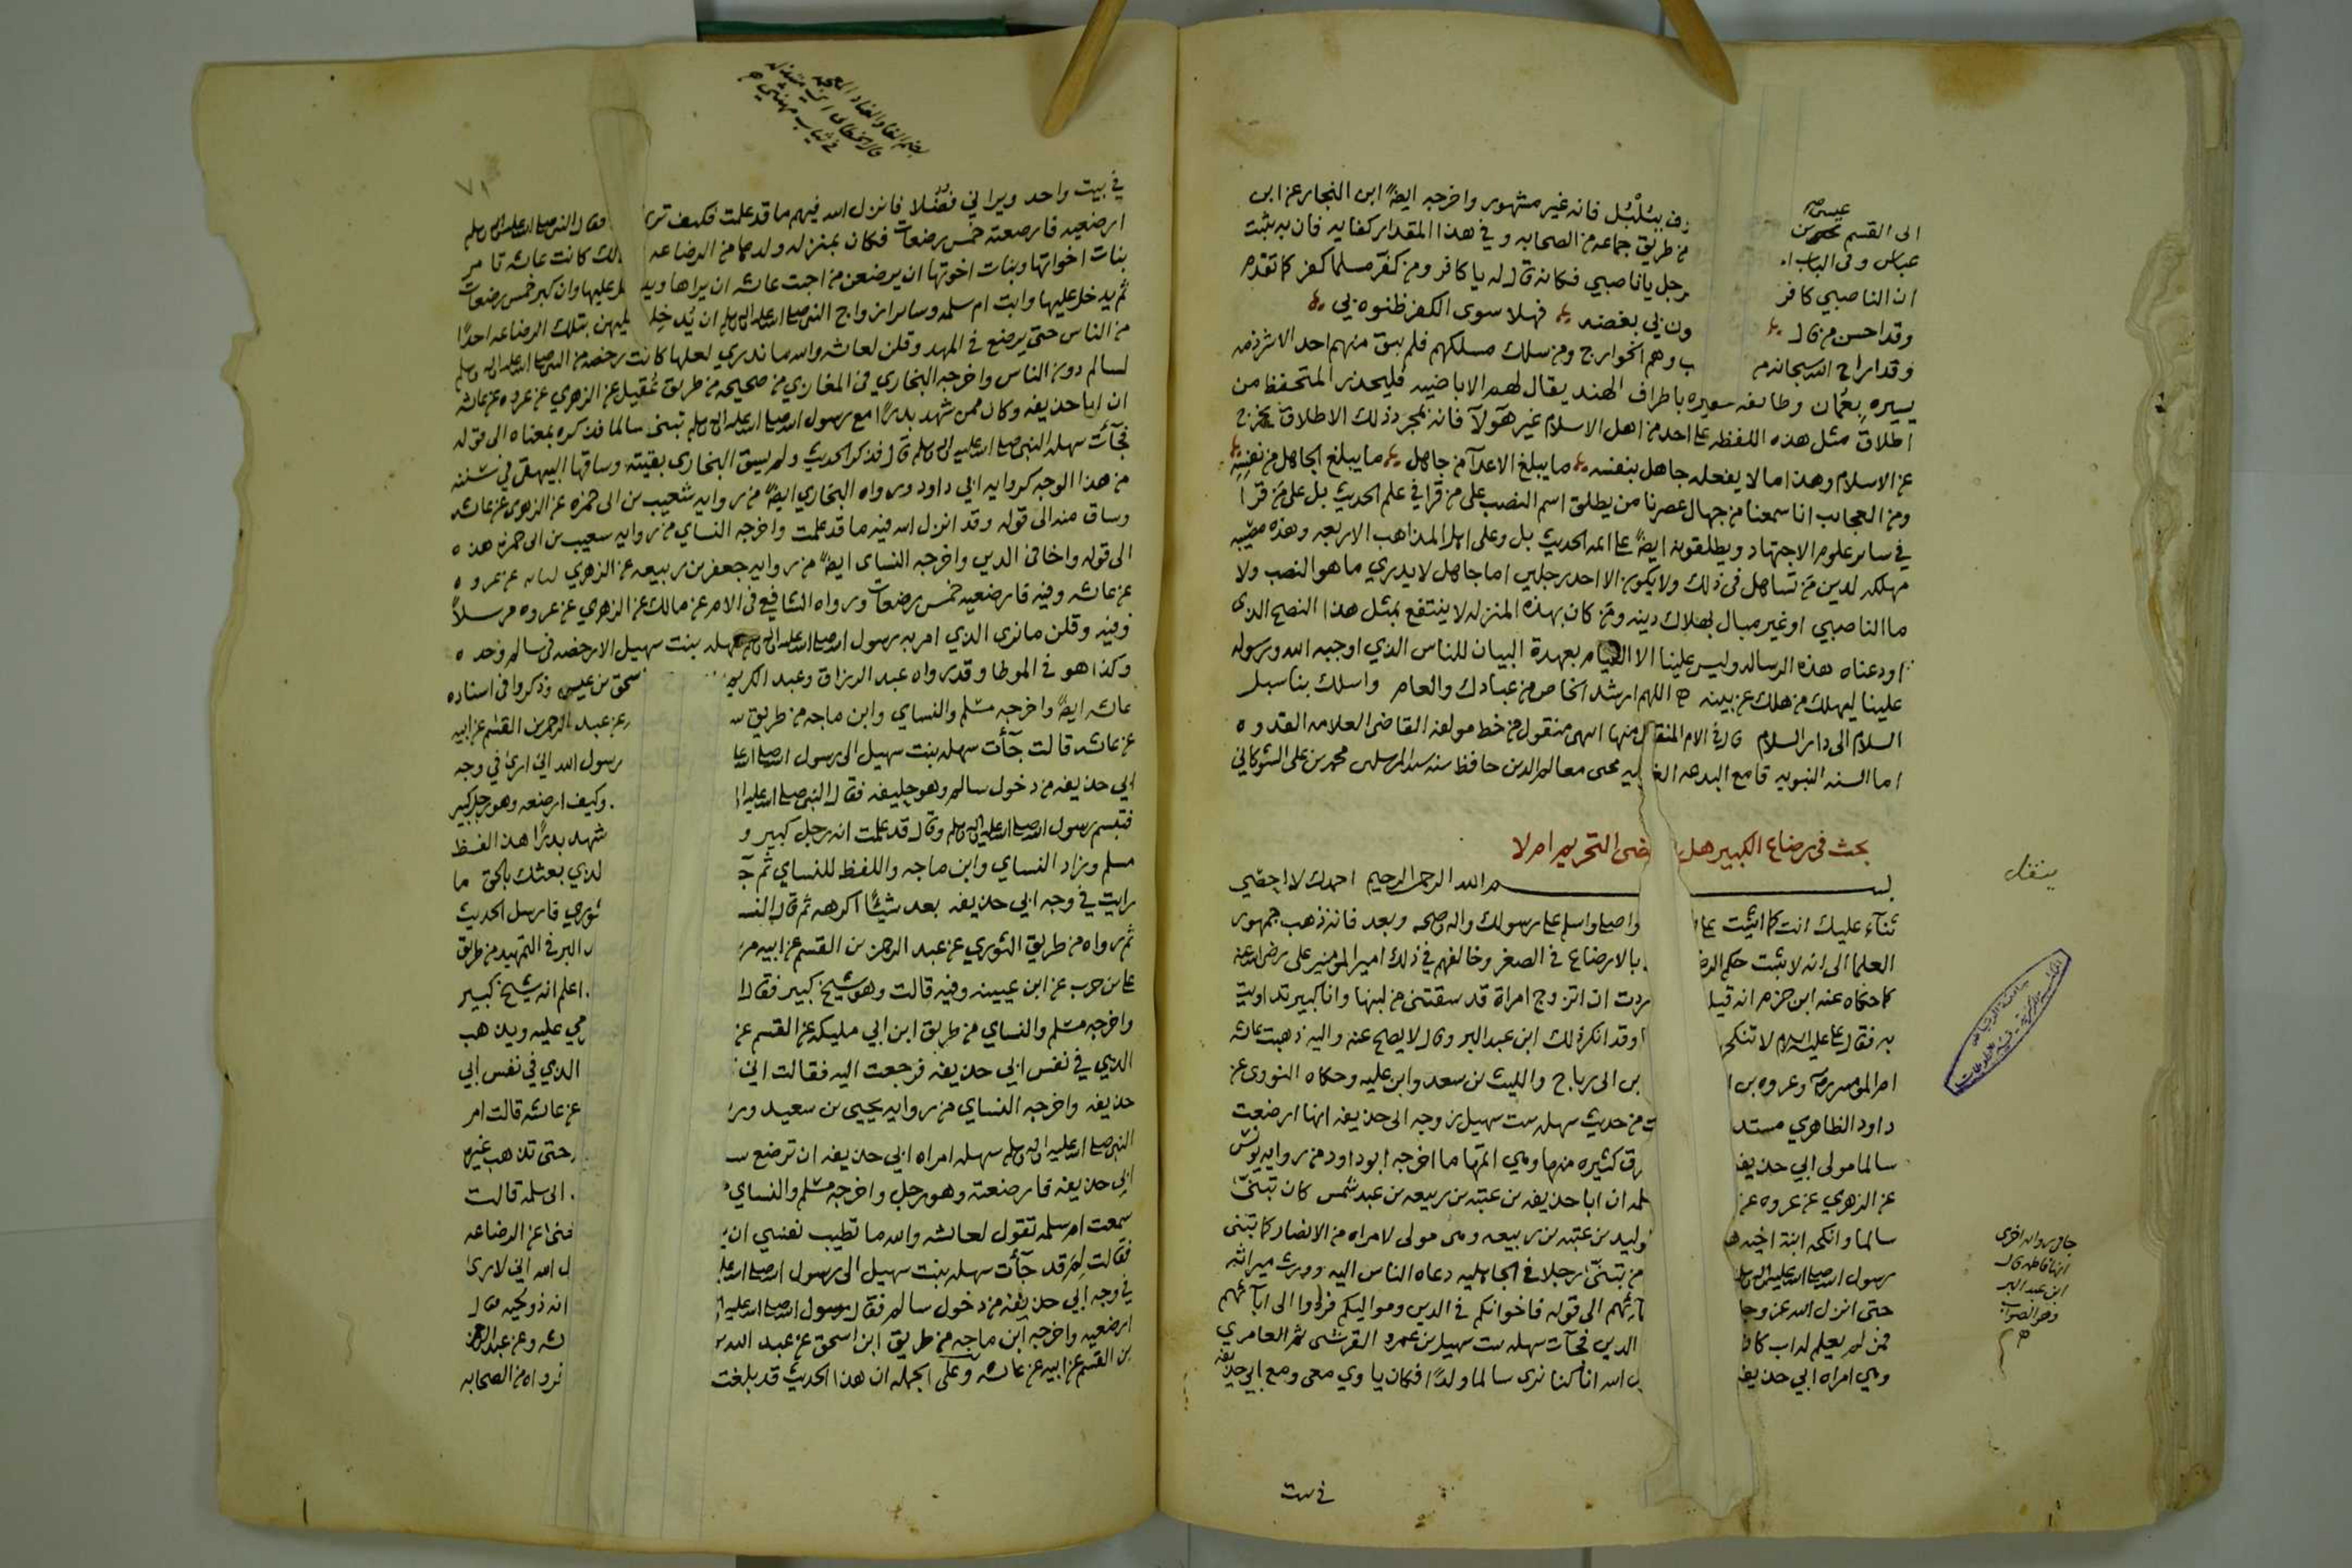 الى القسم عيسى بن رف ببُلْبُل فانه غير مشهور واخرجه ايضًا ابن النجار عن ابن
عباس وفى الباب من طريق جماعه من الصحابه وفي هذا المقدار كفايه فان به يثبت
ان الناصبي كافر رجل يا ناصبي فكانه قال له يا كافر ومن كفّر مسلما كفر كما تقدم
وقد احسن من قال ون بي بغضه فهلا سوى الكفر ظنوه بي
وقد اراح الله سبحانه من ب وهم الخوارج ومن سلك مسلكهم فلم يبق منهم احد الا شرذمه
يسيره بعُمان وطائفه حقيره باطراف الهند يقال لهم الاباضيه فليحذر المتحفظ من
اطلاق مثل هذه اللفظه على احد من اهل الاسلام غير هؤلآ فانه بمجرد ذلك الاطلاق يخرج
عن الاسلام وهذا ما لا يفعله جاهل بنفسه ما يبلغ الاعدآ من جاهل ما يبلغ الجاهل من نفسه
ومن العجائب انا سمعنا من جهال عصرنا من يطلق اسم النصب على من قرا في علم الحديث بل على من قرا
في سائر علوم الاجتهاد ويطلقونه ايضًا على ائمه الحديث بل وعلى اهل المذاهب الاربعه وهذه مصيبه
مهلكه لدين من تساهل فى ذلك ولا يكون الا احد رجلين اما جاهل لا يدري ما هو النصب ولا
ما الناصبي او غير مبال بهلاك دينه ومن كان بهذه المنزله لا ينتفع بمثل هذا النصح الذى
اودعناه هذه الرساله وليس علينا الا القيام بعهدة البيان للناس الذي اوجبه الله ورسوله
علينا ليهلك من هلك عن بينه اللهم ارشد الخاص من عبادك والعام واسلك بنا سبل
السلام الى دار السلام قال في الام المنقول منها انتهى منقول من خط مولفه القاضى العلامه القدوه
امام السنه النبويه قامع البدعه محيى معالم الدين حافظ سنه سيد المرسلين محمد بن على الشوكاني
بحث فى رضاع الكبير هل يقتضى التحريم ام لا
بسم الله الرحمن الرحيم احمدك لا احصي
ثنآء عليك انت كما اثنيت على واصلي واسلم على رسولك واله وصحبه وبعد فانه ذهب جمهور
العلما الى انه لا يثبت حكم الرضا بالارضاع فى الصغر وخالفهم في ذلك امير المومنين على رضى الله عنه
كما حكاه عنه ابن حزم انه قيل ردت ان اتزوج امراة قد سقتنى من لبنها وانا كبير تداويت
به فقال على عليه السلام لا تنكح وقد انكر ذلك ابن عبد البر وقال لا يصح عنه واليه ذهبت عائشه
ام المومنين وعروه بن بن ابى رباح والليث بن سعد وابن عليه وحكاه النووى عن
داود الظاهري مستد من حديث سهله بنت سهيل زوجه ابى حذيفه انها ارضعت
سالما مولى ابي حذيفه رق كثيره منها وهي اتمها ما اخرجه ابو داود من روايه يونس
عن الزهري عن عروه عن ان ابا حذيفه بن عتبه بن ربيعه بن عبد شمس كان تبنّى
سالما وانكحه ابنة اخيه وليد بن عتبه بن ربيعه وهو مولى لامراه من الانصار كما تبنى
رسول الله صلى الله عليه واله وسلم من تبنّى رجلا في الجاهليه دعاه الناس اليه وورث ميراثه
حتى انزل الله عز وجل آبائهم الى قوله فاخوانكم فى الدين ومواليكم فردوا الى ابآئهم
فمن لم يعلم له اب كان الدين فجآت سهله بنت سهيل بن عمرو القرشى ثم العامري
وهي امراه ابي حذيفه الله انا كنا نرى سالما ولدًا فكان ياوي معى ومع ابي حذيفه
في بيت
ينقل
جآ في روايه اخرى
انها فاطمه قال
ابن عبد البر
وهو الصواب
٧١
في بيت واحد ويراني فضُلا فانزل الله فيهم ما قد علمت فكيف ترى وقال النبي صلى الله عليه واله وسلم
ارضعيه فارضعته خمس رضعات فكان بمنزله ولدها من الرضاعه كانت عائشه تامر
بنات اخواتها وبنات اخوتها ان يرضعن من احبت عائشه ان يراها عليها وان كبر خمس رضعات
ثم يدخل عليها وابت ام سلمه وسائر ازواج النبي صلى الله عليه واله وسلم ان يُدخِلن عليهن بتلك الرضاعه احدًا
من الناس حتى يرضع فى المهد وقلن لعائشه والله ما ندري لعلها كانت رخصه من النبي صلى الله عليه واله وسلم
لسالم دون الناس واخرجه البخاري فى المغازي من صحيحه من طريق عُقيل عن الزهري عن عروه عن عائشه
ان ابا حذيفه وكان ممن شهد بدرًا مع رسول الله صلى الله عليه واله وسلم تبنى سالما فذكره بمعناه الى قوله
فجآت سهله النبي صلى الله عليه واله وسلم قال فذكر الحديث ولم يسق البخارى بقيته وساقها البيهقى في سننه
من هذا الوجه كروايه ابي داود ورواه البخاري ايضًا من روايه شعيب بن ابى حمزه عن الزهرى عن عائشه
وساق منه الى قوله وقد انزل الله فيه ما قد علمت واخرجه النساي من روايه شعيب بن ابى حمزه هذه
الى قوله واخا فى الدين واخرجه النساى ايضًا من روايه جعفر بن ربيعه عن الزهري عن عروه
عن عائشه وفيه فارضعيه خمس رضعات ورواه الشافعي فى الام عن مالك عن الزهري عن عروه مرسلاً
وفيه وقلن ما نرى الذي امر به رسول الله صلى الله عليه واله وسلم سهله بنت سهيل الا رخصه فى سالم وحده
وكذا هو فى الموطا وقد رواه عبد الرزاق وعبد الكريم سحق بن عيسى وذكروا فى اسناده
عائشه ايضًا واخرجه مسلم والنساي وابن ماجه من طريق عن عبد الرحمن بن القسم عن ابيه
عن عائشه قالت جآت سهله بنت سهيل الى رسول الله صلى الله رسول الله اني ارى في وجه
ابي حذيفه من دخول سالم وهو حليفه فقال النبي صلى الله عليه وكيف ارضعه وهو رجل كبير
فتبسم رسول الله صلى الله عليه واله وسلم وقال قد علمت انه رجل كبير و شهد بدرًا هذا لفظ
مسلم وزاد النساي وابن ماجه واللفظ للنساي ثم جآ لذي بعثك بالحق ما
رايت في وجه ابي حذيفه بعد شيئًا اكرهه ثم قال النسا ثوري فارسل الحديث
ثم رواه من طريق الثوري عن عبد الرحمن بن القسم عن ابيه البر فى التمهيد من طريق
على بن حرب عن ابن عيينه وفيه قالت وهو شيخ كبير فقال اعلم انه شيخ كبير
واخرجه مسلم والنساي من طريق ابن ابي مليكه عن القسم عن مي عليه ويذهب
الذي في نفس ابي حذيفه فرجعت اليه فقالت اني الذي في نفس ابي
حذيفه واخرجه النساي من روايه يحيى بن سعيد ور عن عائشه قالت امر
النبي صلى الله عليه واله وسلم سهله امراه ابي حذيفه ان ترضع حتى تذهب غيره
ابي حذيفه فارضعته وهو رجل واخرجه مسلم والنساي ابى سلمه قالت
سمعت ام سلمه تقول لعائشه والله ما تطيب نفسي ان عن الرضاعه
فقالت لِمَ قد جآت سهله بنت سهيل الى رسول الله صلى الله ل الله اني لارى
في وجه ابي حذيفه من دخول سالم فقال رسول الله صلى الله عليه انه ذو لحيه قال
ارضعيه واخرجه ابن ماجه من طريق ابن اسحق عن عبد الله وعن عبد الرحمن
بن القسم عن ابيه عن عائشه وعلى الجمله ان هذا الحديث قد بلغت من الصحابه